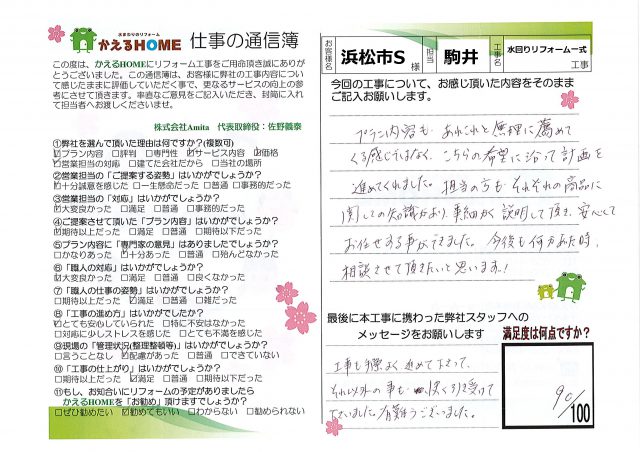 水まわりのリフォーム
かえるHOME 仕事の通信簿
この度は、かえるHOMEにリフォーム工事をご用命頂き誠にありがとうございました。この通信簿は、お客様に弊社の工事内容について感じたままに評価していただく事で、更なるサービスの向上の参考にさせて頂きます。率直なご意見をご記入いただき、封筒に入れて担当者へお渡しくださいませ。
株式会社Amita 代表取締役:佐野義泰
①弊社を選んで頂いた理由は何ですか?(複数可)
☑プラン内容 □評判 □専門性 ☑サービス内容 ☑価格
☑営業担当の対応 □建てた会社だから □当社の場所
②営業担当の「ご提案する姿勢」はいかがでしょうか?
☑十分誠意を感じた □一生懸命だった □普通 □事務的だった
③営業担当の「対応」はいかがでしょうか?
☑大変良かった □満足 □普通 □事務的だった
④ご提案させて頂いた「プラン内容」はいかがでしょうか?
☑期待以上だった □満足 □普通 □期待以下だった
⑤プラン内容に「専門家の意見」はありましたでしょうか?
□かなりあった ☑十分あった □普通 □殆んどなかった
⑥「職人の対応」はいかがでしょうか?
☑大変良かった □満足 □普通 □良くなかった
⑦「職人の仕事の姿勢」はいかがでしょうか?
□期待以上だった ☑満足 □普通 □雑だった
⑧「工事の進め方」はいかがでしたか?
☑とても安心していられた □特に不安はなかった
□対応に少しストレスを感じた □とても不満を感じた
⑨現場の「管理状況(整理整頓等)」はいかがでしょうか?
□言うことなし ☑配慮があった □普通 □できていない
⑩「工事の仕上がり」はいかがでしょうか?
□期待以上だった ☑満足 □普通 □期待以下だった
⑪もし、お知合いにリフォームの予定がありましたら
かえるHOMEを「お勧め」頂けますでしょうか?
□ぜひ勧めたい ☑勧めてもいい □わからない □勧められない
お客様名 浜松市S 様 担当 駒井 工事名 水回りリフォーム一式 工事
今回の工事について、お感じ頂いた内容をそのまま
ご記入お願いします。
プラン内容も、あれこれと無理に薦めて
くる感じではなく、こちらの希望に沿って計画を
進めてくれました。担当の方も、それぞれの商品に
関しての知識があり、事細かく説明して頂き、安心して
お任せする事ができました。今後も何かあった時、
相談させて頂きたいと思います!
最後に本工事に携わった弊社スタッフへの
メッセージをお願いします
工事も手際よく進めて下さって、
それ以外の事も快く引き受けて
下さいました。有難うございました。
満足度は何点ですか?
90/100